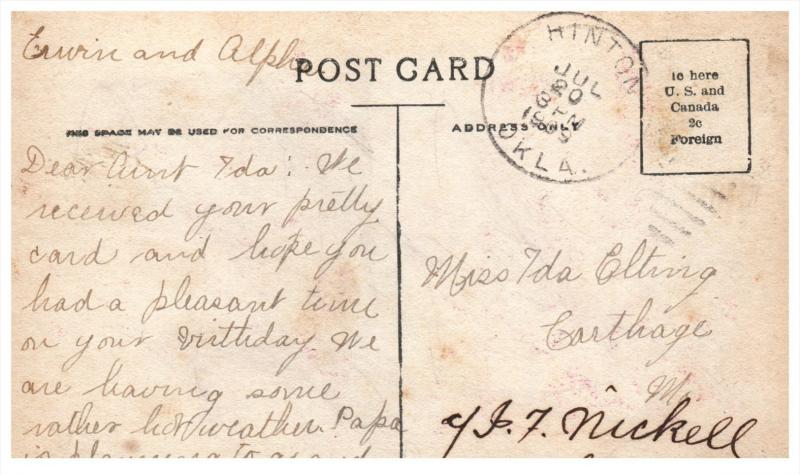 Erwin and Alpha
POST CARD
THIS SPACE MAY BE USED FOR CORRESPONDENCE
ADDRESS ONLY
HINTON
JUL
OKLA.
1c here
U. S. and
Canada
2c
Foreign
Dear Aunt Ida: We
received your pretty
card and hope you
had a pleasant time
on your birthday. We
are having some
rather hot weather. Papa
Miss Ida Elting
Carthage
Mo.
c/ J. F. Nickell